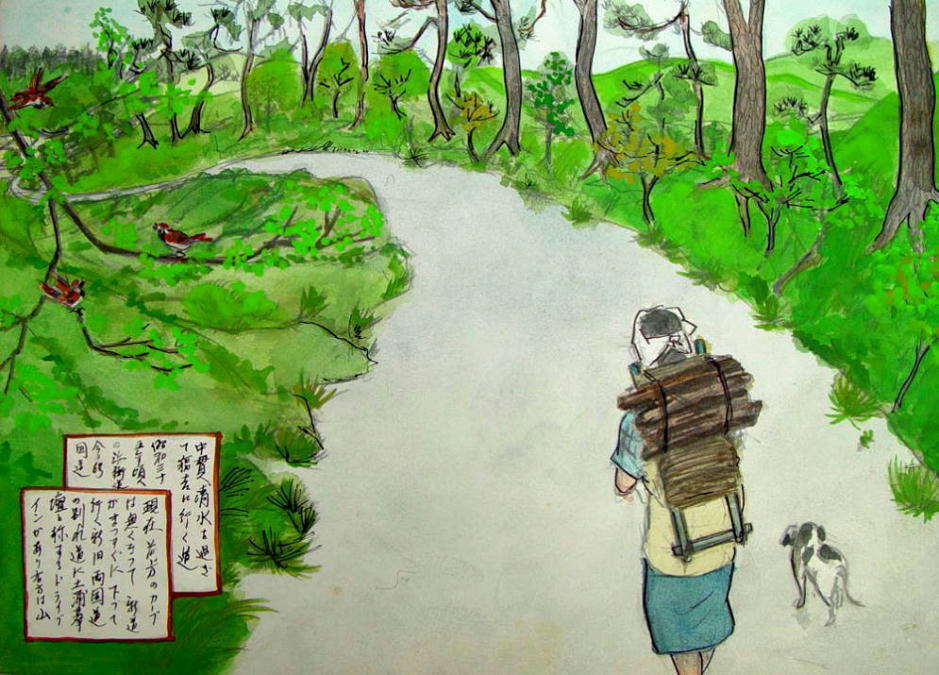 中貫清水を過ぎ
て稲吉に行く道
昭和三十
年頃
の浜街道
今の
国道
現在 前方のカーブ
は無くなって 新道
がまっすぐに下って
行く新旧両国道
の別れ道に土浦
と称するドライブ
インがあり右方は山